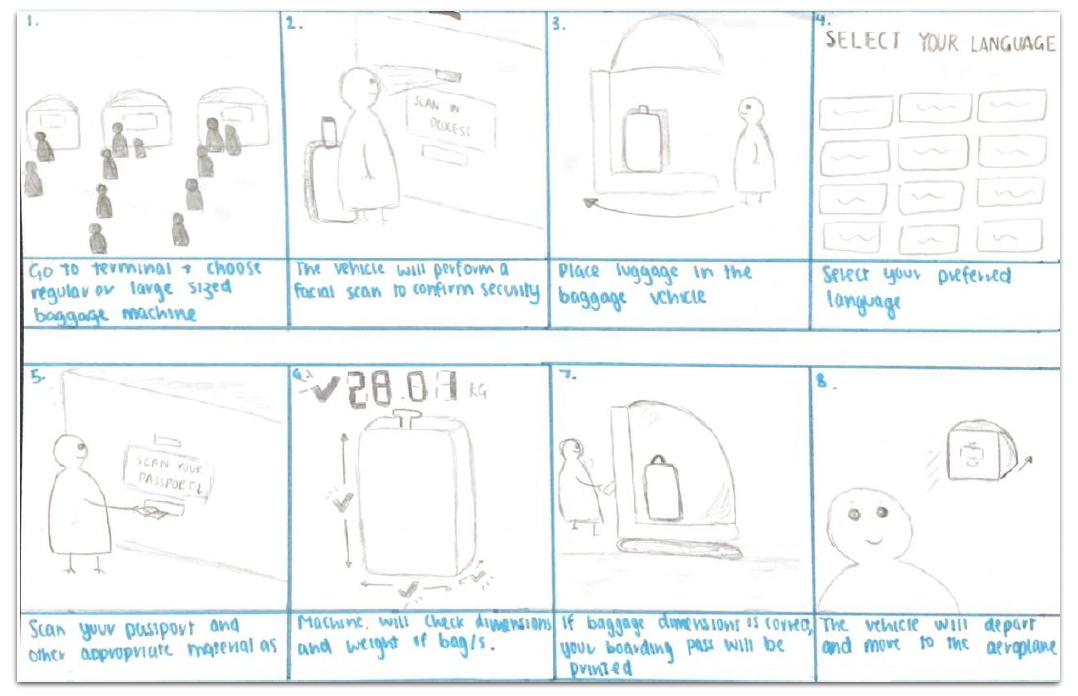 1.
Go to terminal + choose
regular or large sized
baggage machine
2.
SCAN IN
PROCESS
The vehicle will perform a
facial scan to confirm security
3.
Place luggage in the
baggage vehicle
4.
SELECT YOUR LANGUAGE
Select your preferred
language
5.
SCAN YOUR
PASSPORT
Scan your passport and
other appropriate material as
6.
28.01 KG
Machine will check dimensions
and weight of bag/s.
7.
If baggage dimensions is correct,
your boarding pass will be
printed
8.
The vehicle will depart
and move to the aeroplane